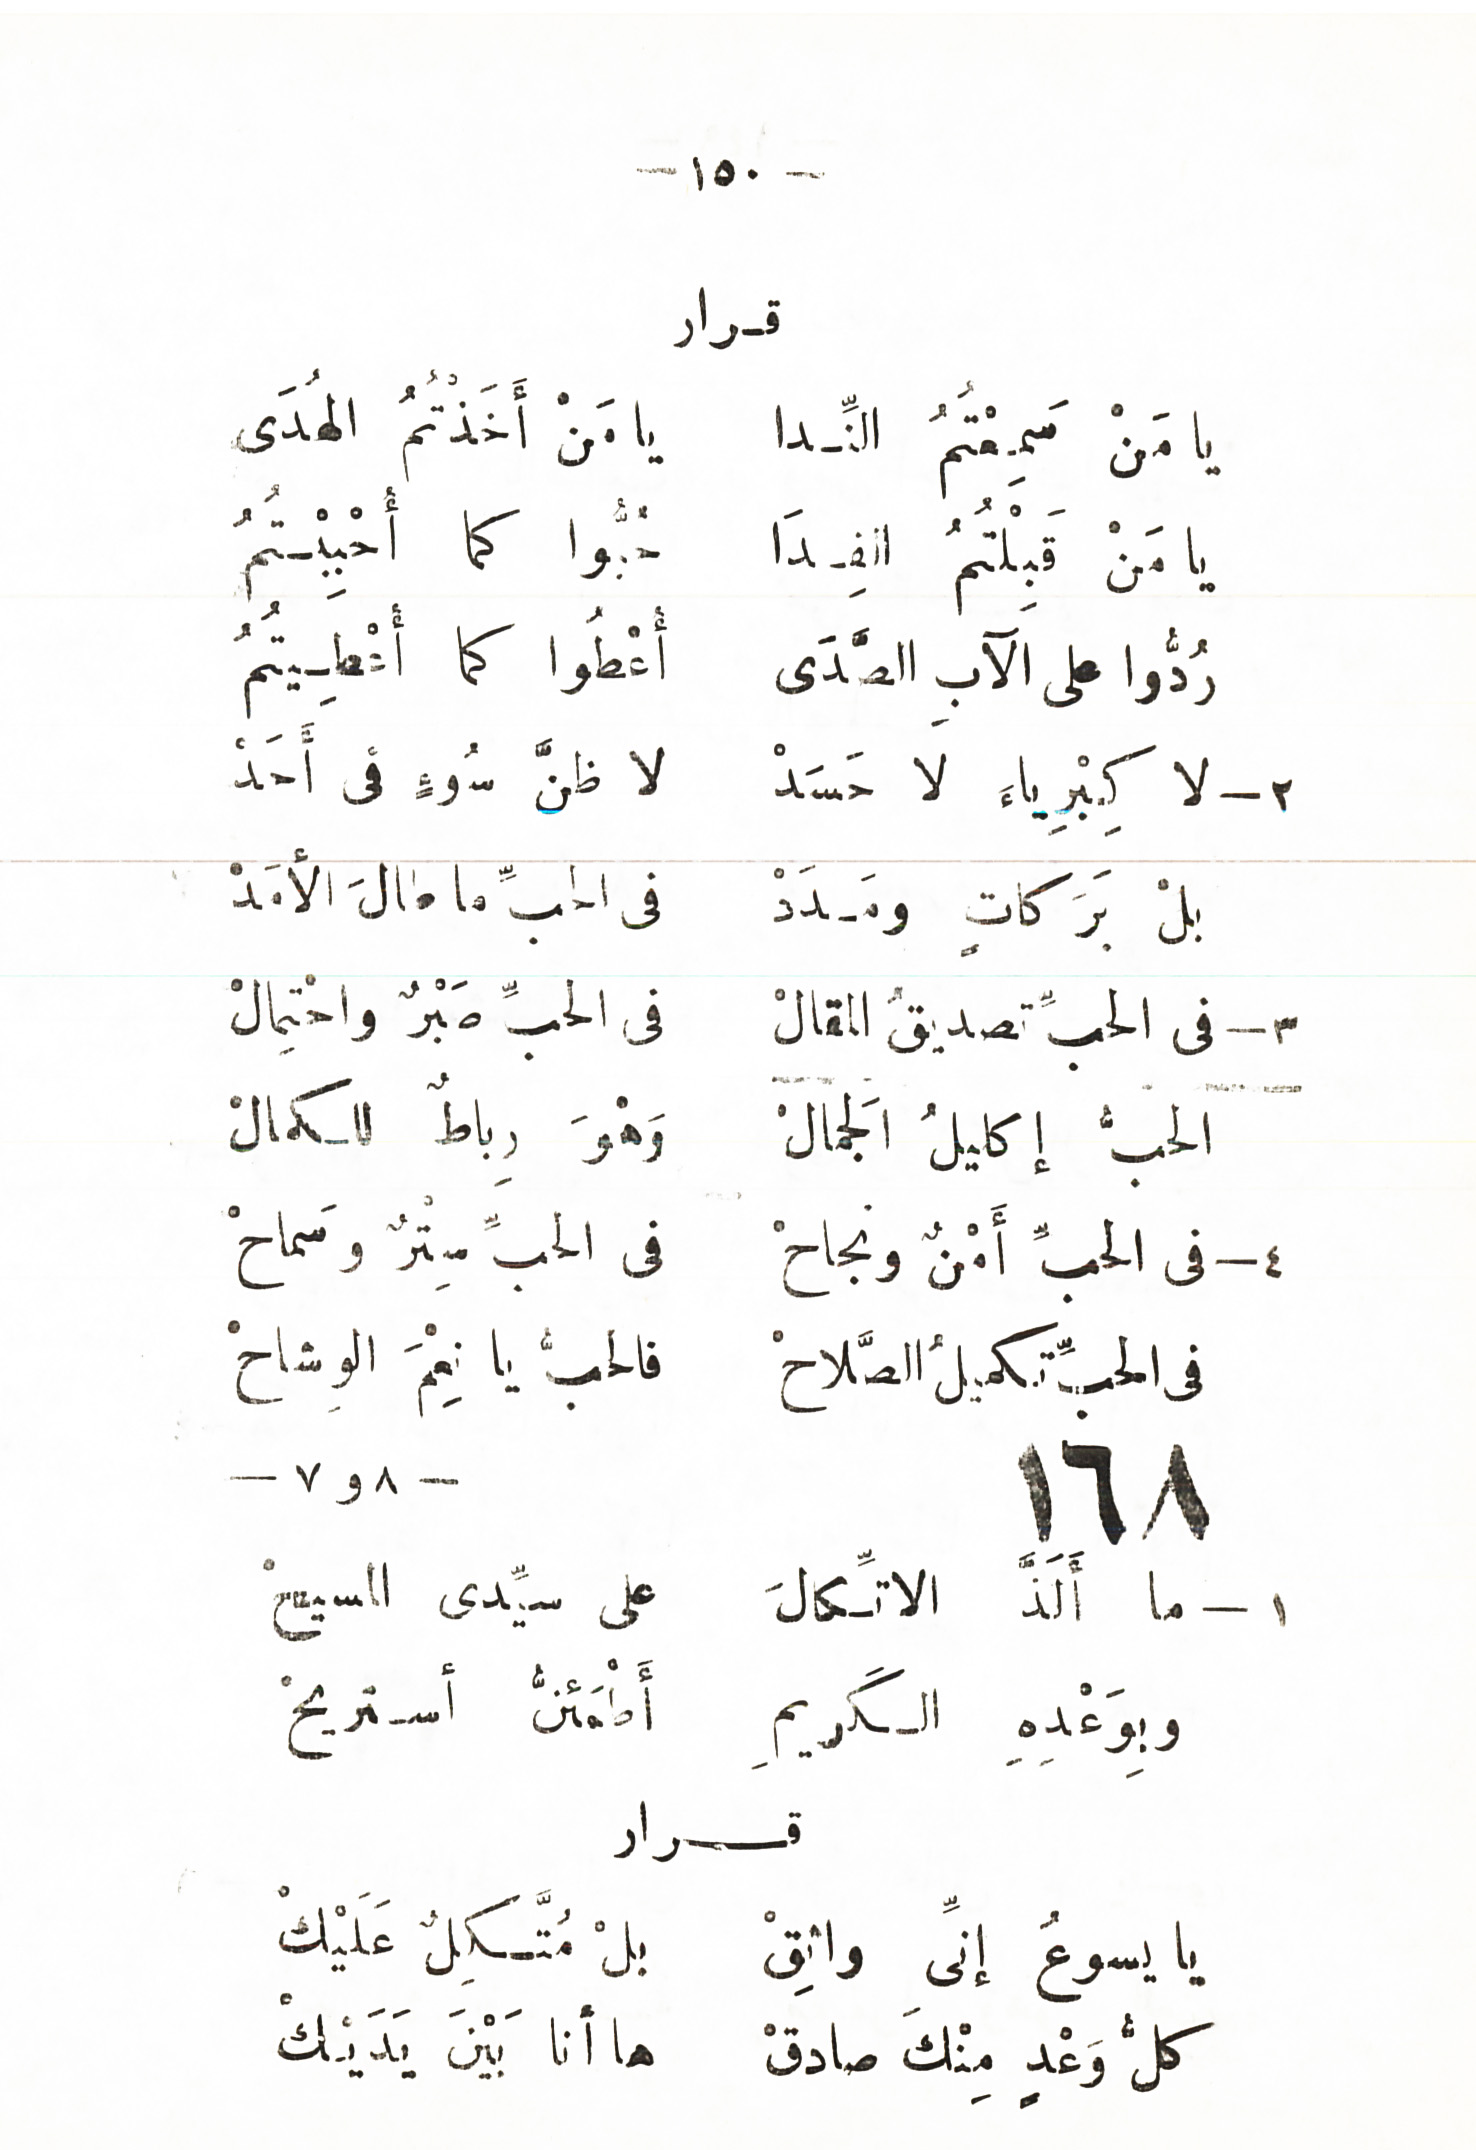 — ١٥٠ —
قـرار
يا مَنْ سَمِعْتُمُ النِّـدا يا مَنْ أَخَذْتُمُ الهُدَى
يا مَنْ قَبِلْتُمُ الفِـدَا حُبُّوا كما أُحْبِبْـتُمُ
رُدُّوا على الآبِ الصَّدَى أَعْطُوا كما أُعْطِـيتُمُ
٢ – لا كِبْرِياءَ لا حَسَدْ لا ظنَّ سُوءٍ فى أَحَدْ
بلْ بَرَكاتٍ ومَـدَدْ فى الحبِّ ما طالَ الأَمَدْ
٣ – فى الحبِّ تصديقُ المقالْ فى الحبِّ صَبْرٌ واحْتِمالْ
الحبُّ إكليلُ الَجمالْ وَهْوَ رِباطٌ للـكمالْ
٤ – فى الحبِّ أَمْنٌ ونجاحْ فى الحبِّ سِتْرٌ وسَماحْ
فى الحبِّ تكميلُ الصَّلاحْ فالحبُّ يا نِعْمَ الوِشاحْ
١٦٨ — ٨ و ٧ —
١ – ما أَلَذَّ الاتِّـكالَ على سيِّدى المسيحْ
وبِوَعْدِهِ الـكَريمِ أَطْمَئنُّ أسـتريحْ
قـــرار
يا يسوعُ إنِّى واثِقْ بلْ مُتَّـكِلٌ عَلَيْكْ
كلُّ وَعْدٍ مِنْكَ صادقْ ها أنا بَيْنَ يَدَيْكْ